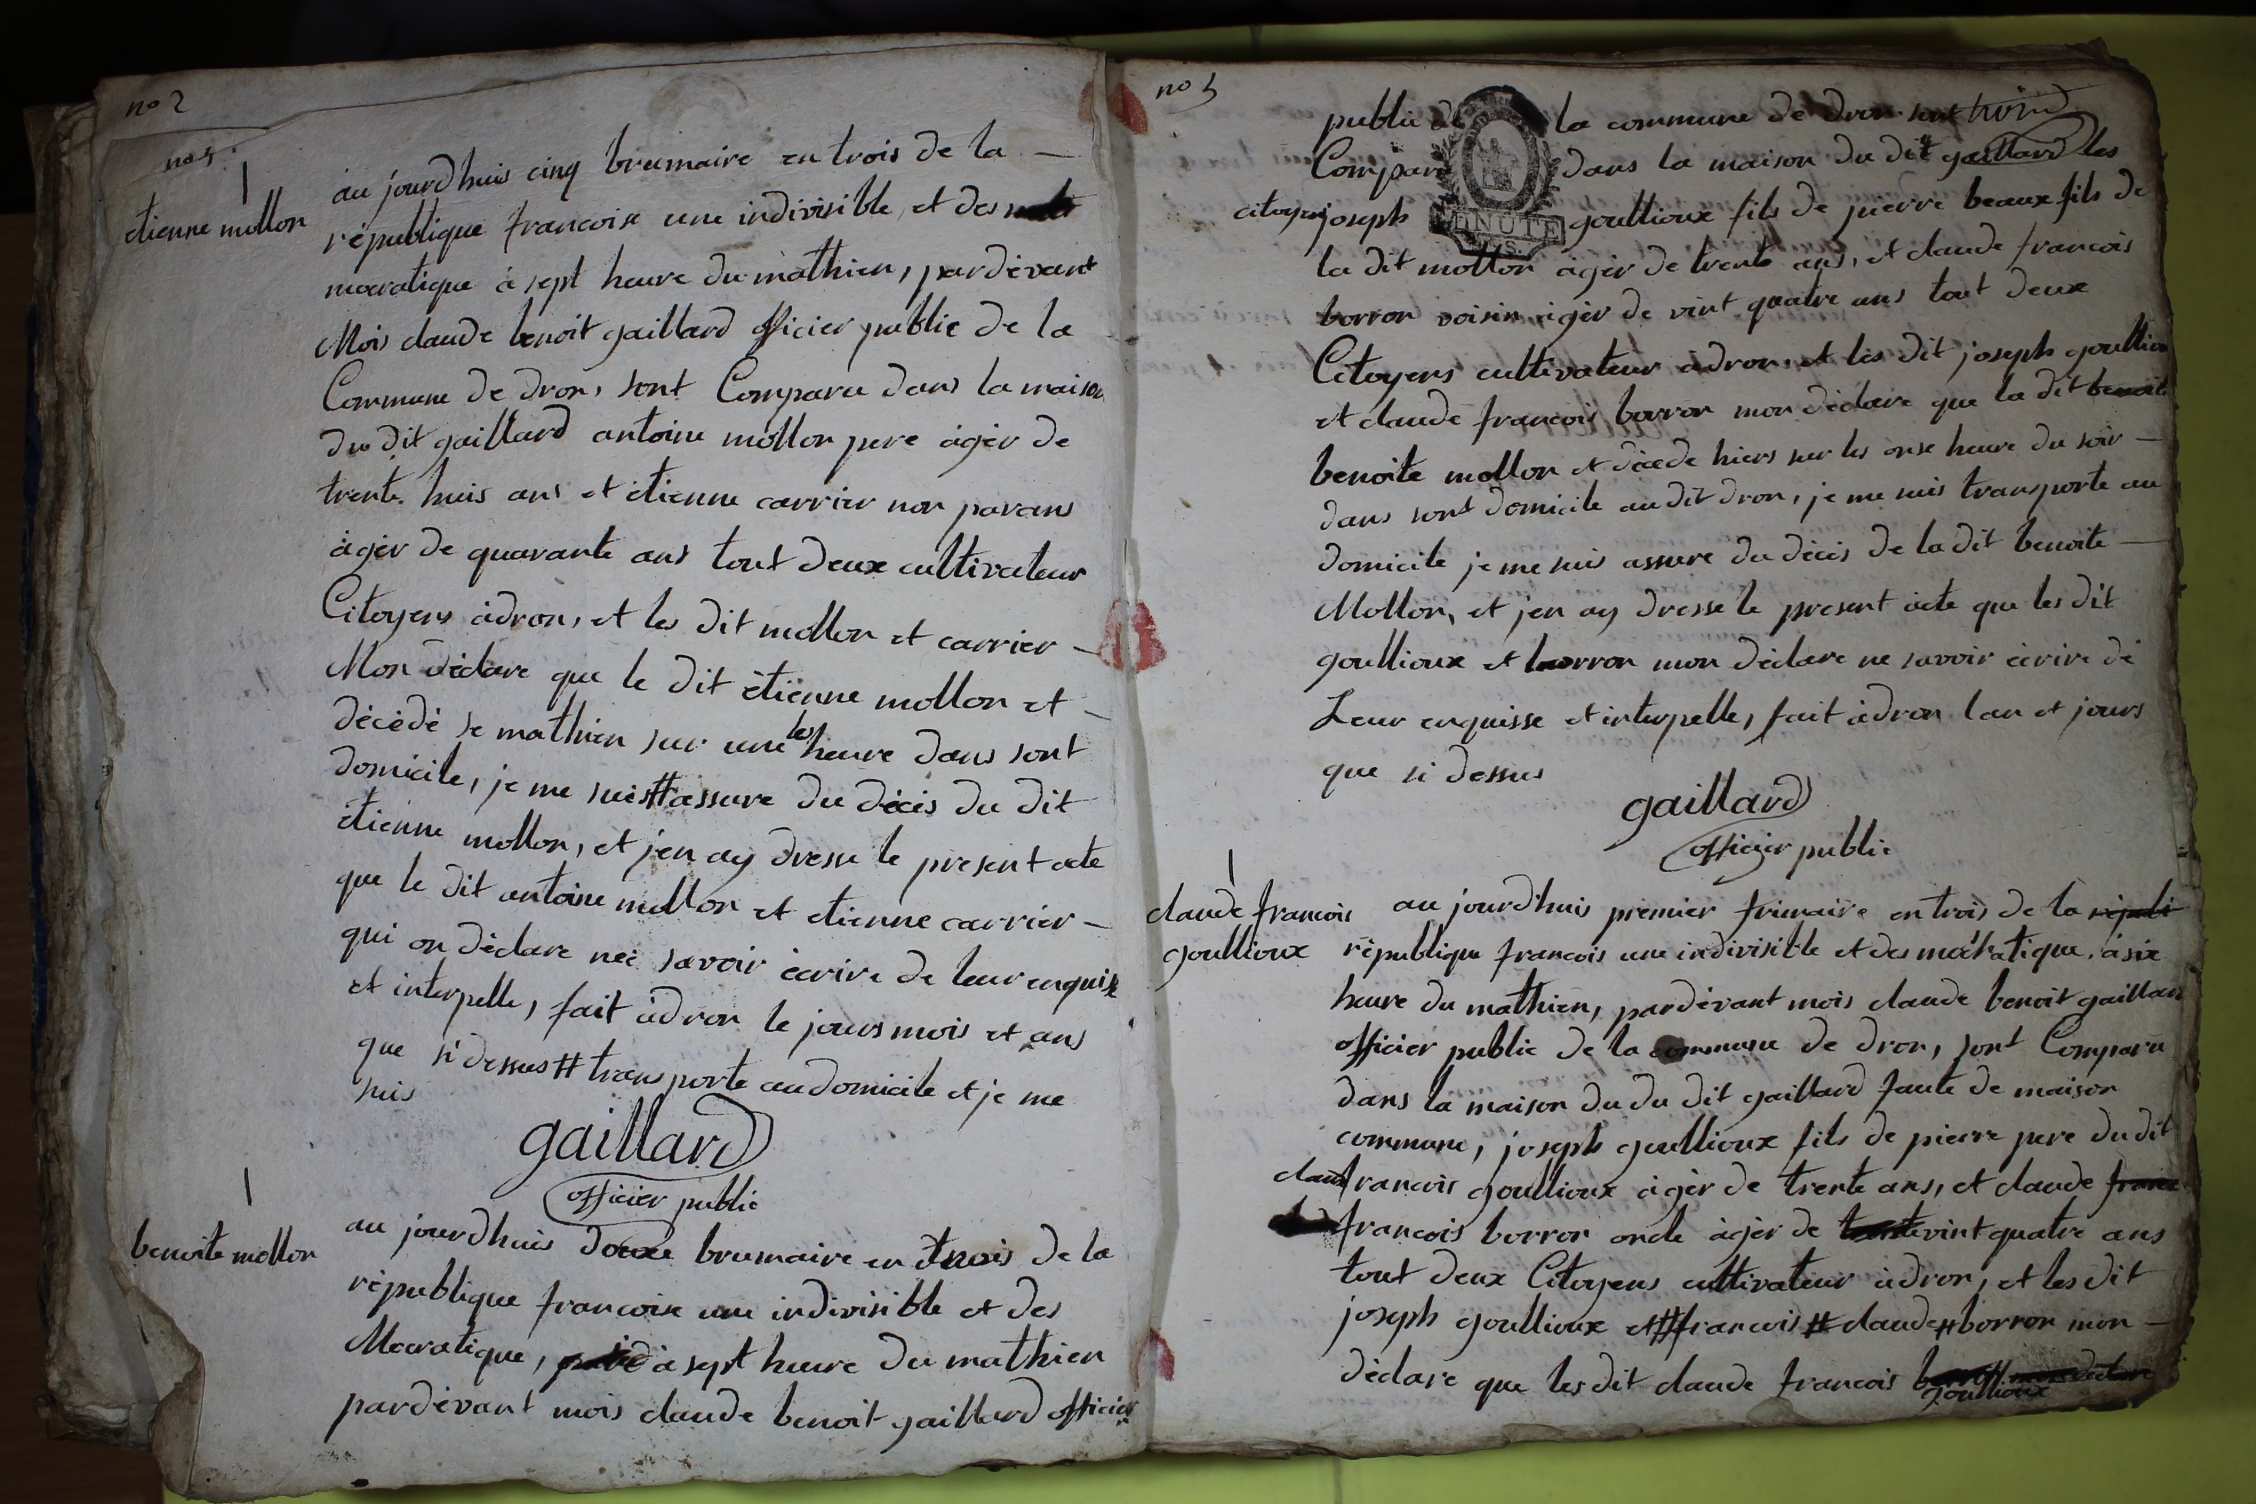 no 2
no 5
etienne mollon
au jourdhuis cinq brumaire en trois de la
république francoise une indivisible, et des
mocratique à sept heure du mathien, pardévant
Mois claude benoit gaillard officier public de la
Commune de dron, sont Comparu dans la maison
du dit gaillard antoine mollon pere àgér de
trente huis ans et étienne carrier non parans
àgér de quarante ans tout deux cultivateur
Citoyens àdron, et les dit mollon et carrier
Mon déclare que le dit étienne mollon et
décédé se mathien sur une les heure dans sont
domicile, je me suis # assure du décis du dit
étienne mollon, et j'en ay dresse le present acte
que le dit antoine mollon et etienne carrier
qui on déclare néi savoir écrire de leur enquise
et interpelle, fait àdron le jours mois et ans
que si dessus # transporte au domicile et je me
suis
gaillard
officier public
benoite mollon
au jourdhuis douxe brumaire en trois de la
république francoise une indivisible et des
Mocratique, à sept heure du mathien
pardévant mois claude benoit gaillard officier
no 3
public de la commune de dron sont
Comparu dans la maison du dit gaillard les
citoyen joseph goullioux fils de pierre beaux fils de
MINUTE
S.
la dit mollon àgér de trente ans, et claude francois
borron voisin àgér de vint quatre ans tout deux
Citoyens cultivateur àdron, et les dit joseph goullioux
et claude francois borron mon déclare que la dit benoite
benoite mollon et décede hiers sur les onse heure du soir
dans sont domicile audit dron, je me suis transporte au
domicile je me suis assure du décis de la dit benoite
Mollon, et j'en ay dresse le present acte que les dit
goullioux et borron mon déclare ne savoir écrire de
Leur enquisse et interpelle, fait àdron lan et jours
que si dessus
gaillard
officier public
claude francois
goullioux
au jourd'huis premier frimaire en trois de la républi
république francois une indivisible et des mocratique, à six
heure du mathien, pardévant mois claude benoit gaillard
officier public de la commune de dron, sont Comparu
dans la maison du du dit gaillard faute de maison
commune, joseph goullioux fils de pierre pere du dit
claude francois goullioux àgér de trente ans, et claude francoi
francois borron oncle àgér de vint quatre ans
tout deux Citoyens cultivateur àdron, et les dit
joseph goullioux et # francois # claude # borron mon
déclare que les dit claude francois
goullioux